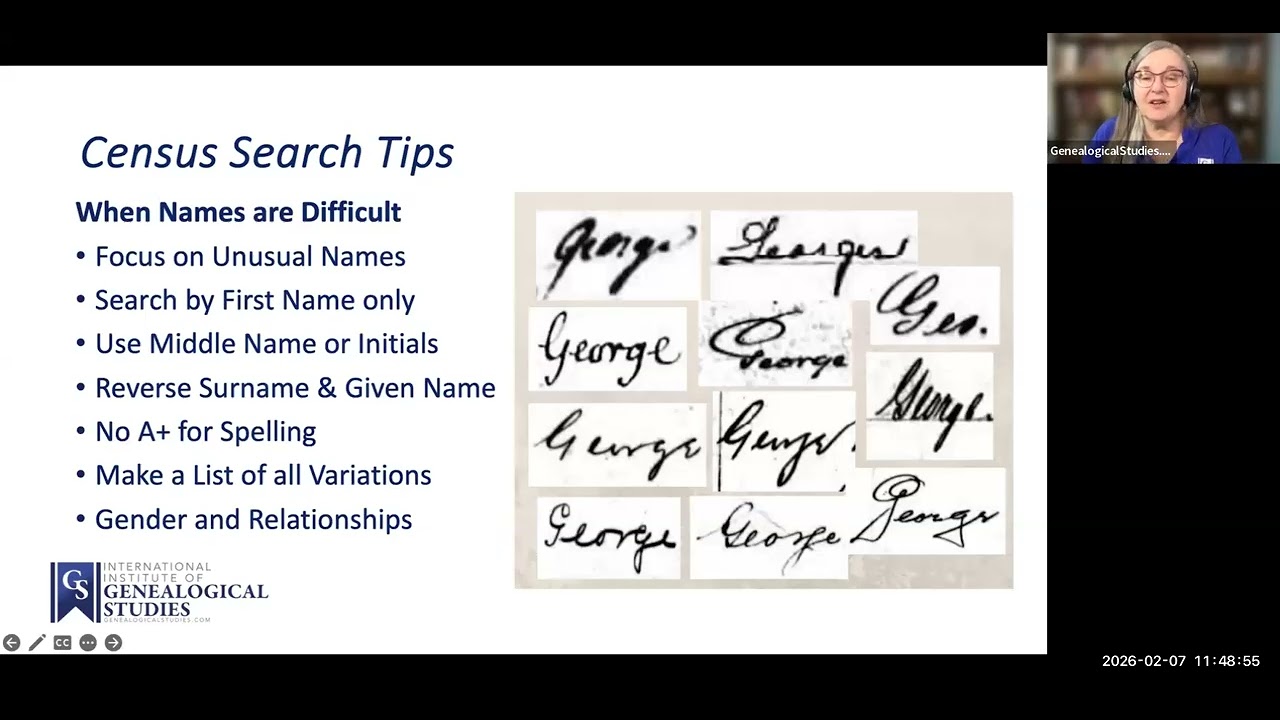 Census Search Tips
When Names are Difficult
• Focus on Unusual Names
• Search by First Name only
• Use Middle Name or Initials
• Reverse Surname & Given Name
• No A+ for Spelling
• Make a List of all Variations
• Gender and Relationships
George Georges
Geo.
George George
George.
George George
George George George
GS INTERNATIONAL
INSTITUTE OF
GENEALOGICAL
STUDIES
GENEALOGICALSTUDIES.COM
CC
GenealogicalStudies....
2026-02-07 11:48:55